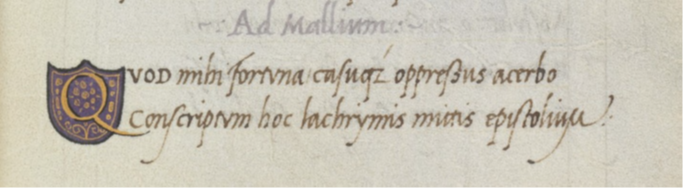 Ad Mallium.
QVOD mihi fortvna casuqz oppressus acerbo
Conscriptvm hoc lachrymis mittis epistolium.